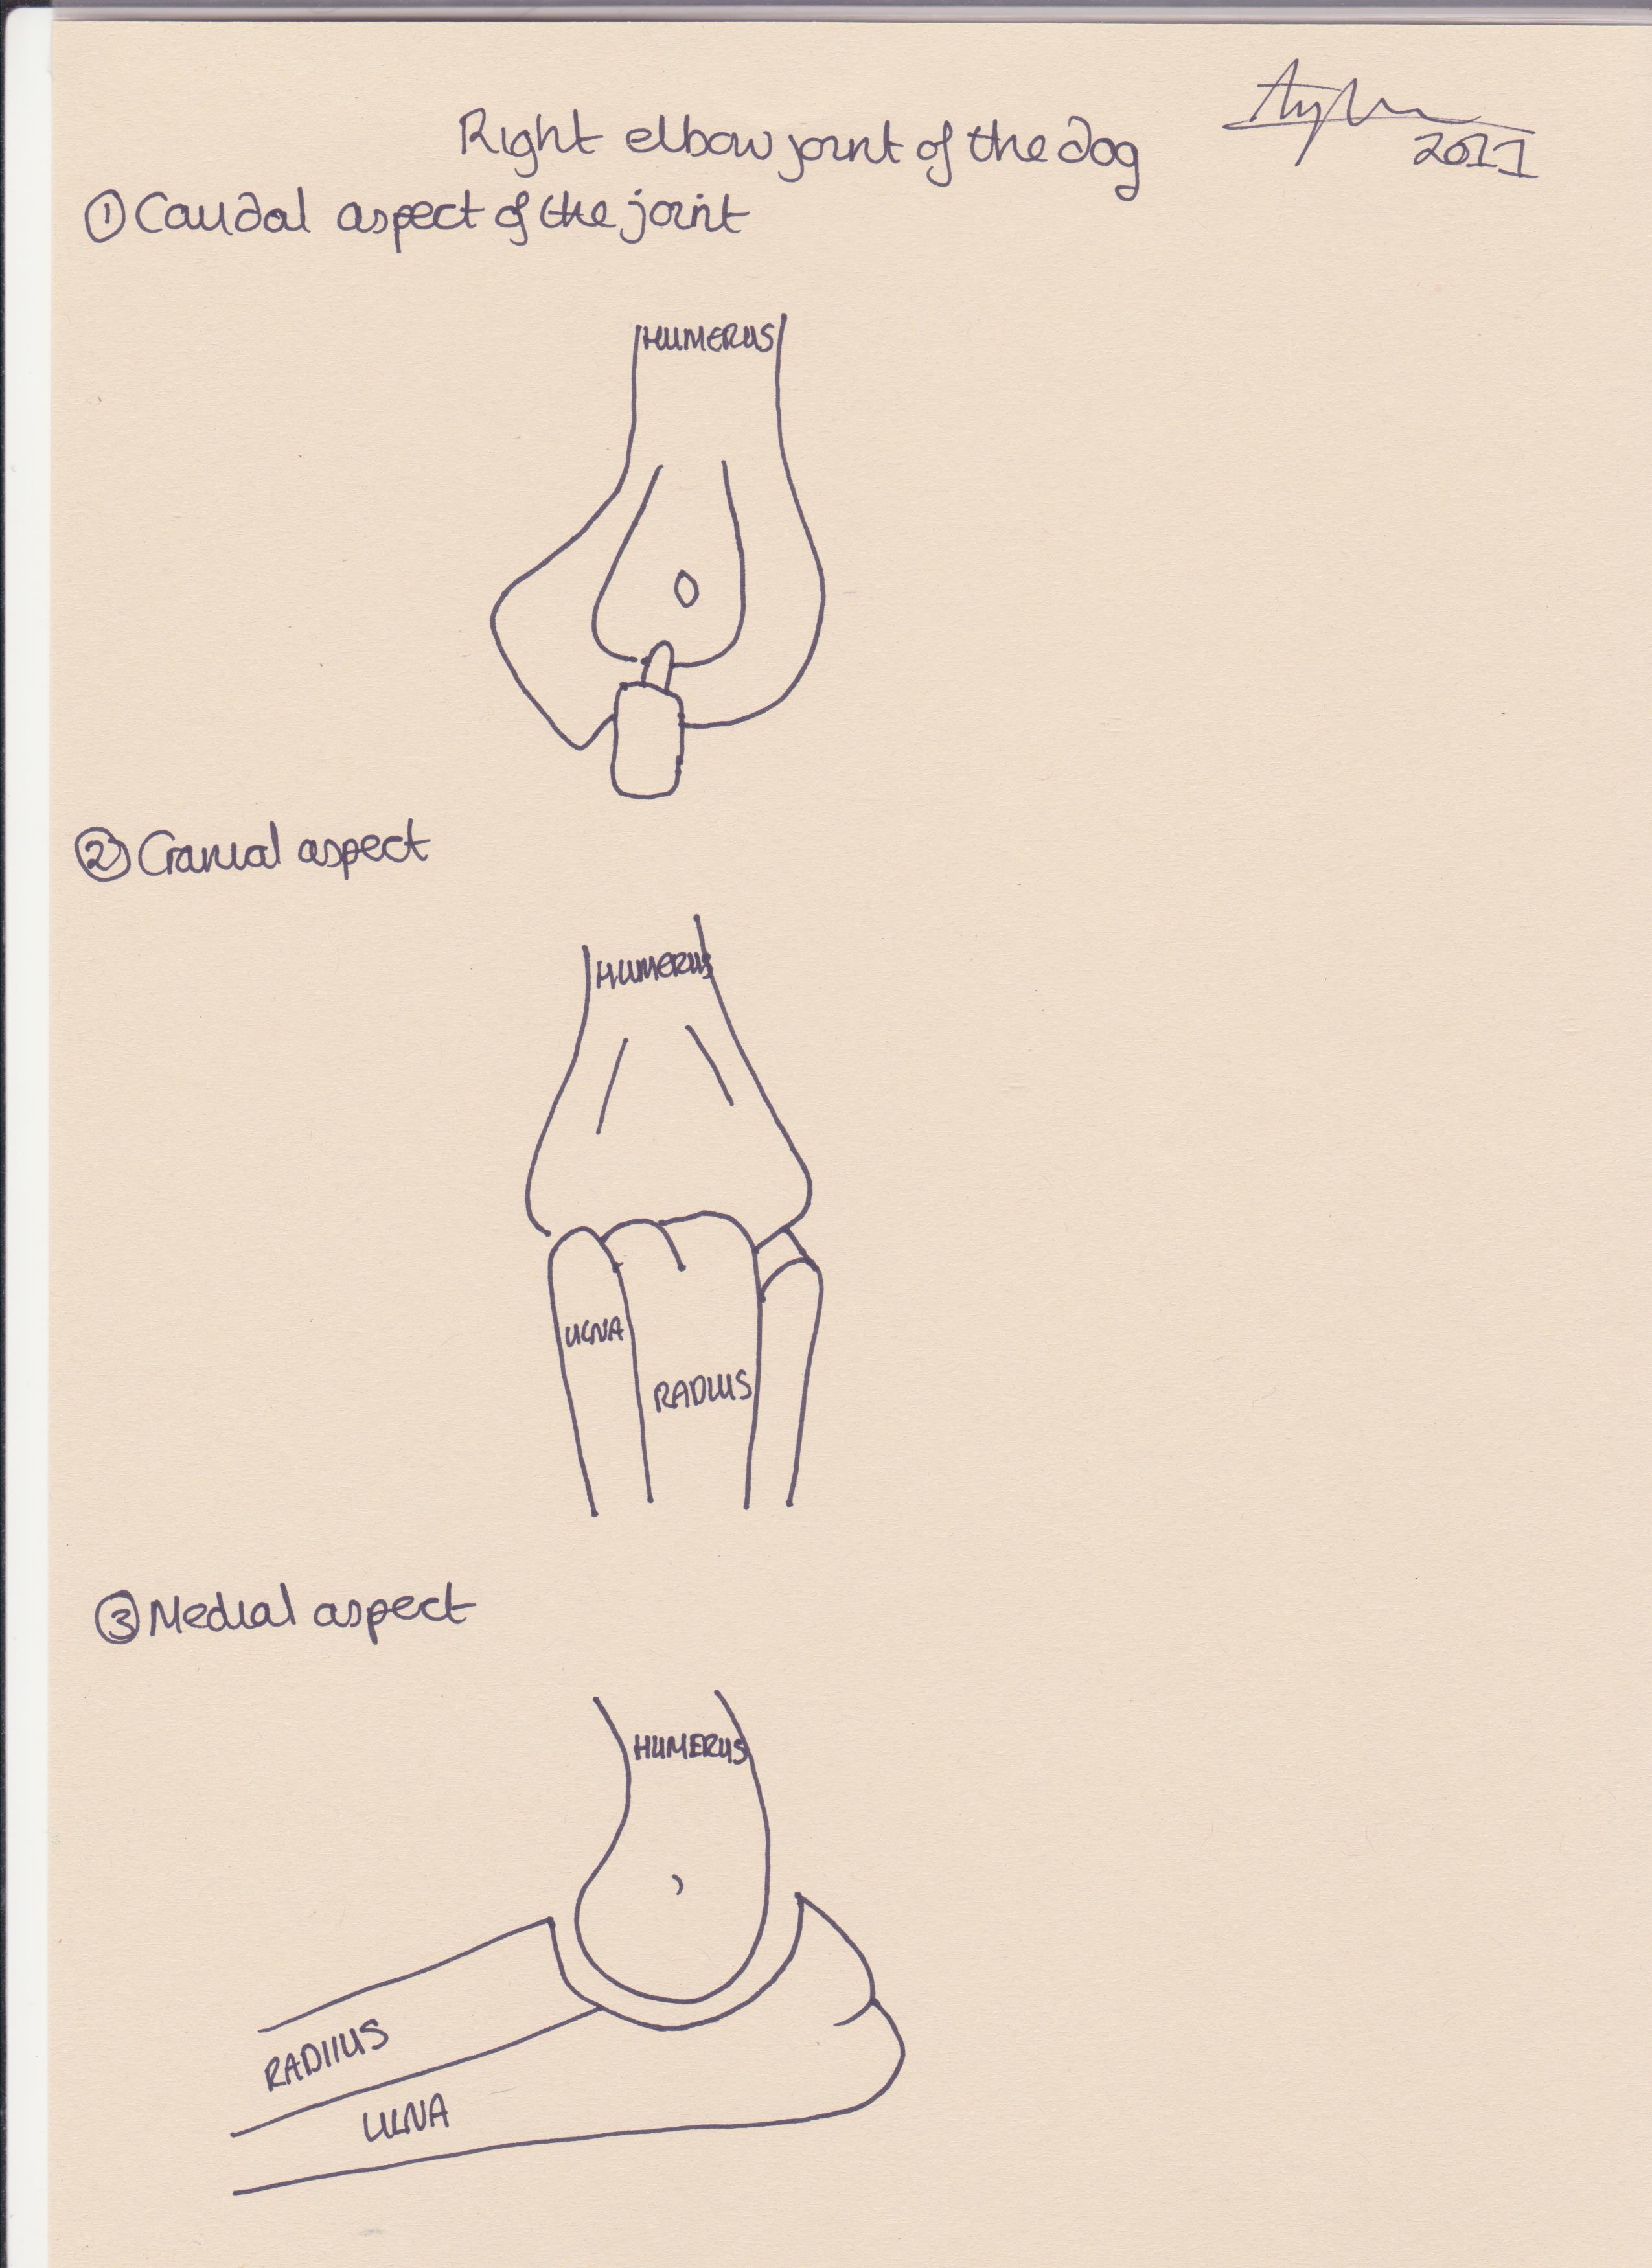 Right elbow joint of the dog
2011
① Caudal aspect of the joint
HUMERUS
② Cranial aspect
HUMERUS
ULNA
RADIUS
③ Medial aspect
HUMERUS
RADIIUS
ULNA